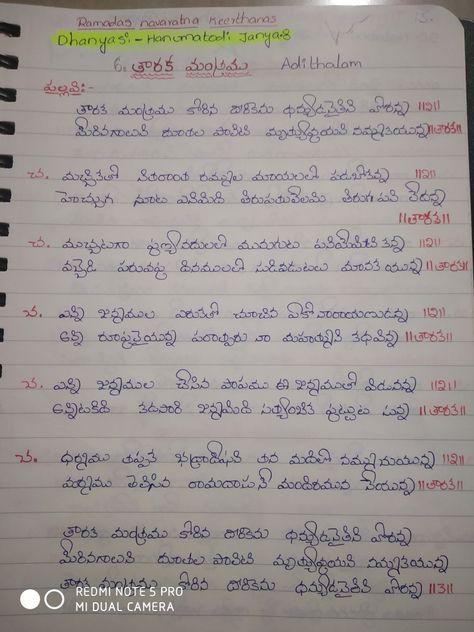 Ramadas navaratna Keerthanas
Dhanyasi - Hanumatodi Janya - 8
6. తారక మంత్రము Adithalam
పల్లవి:-
తారక మంత్రము కోరిన దొరికెను ధన్యుడనైతిని ఓరన్నా ||2||
మీరిన కాలుని దూతల పాలిటి మృత్యువుయని నమ్మకయున్న ||తారక||
చ. మచ్చికతో నితరాంతర మ్ముల మాయలలో పడబోకన్నా ||2||
హెచ్చుగ నూట ఎనిమిది తిరుపతులెలమి తిరుగ పని లేదన్నా
||తారక||
చ. ముచ్చటగా పుణ్యనదులలో మునుగుట పనియేమిటికన్నా ||2||
వచ్చెడి పరువపు దినములలో సుడిబడుటలు మానక యున్న ||తారక||
చ. ఎన్ని జన్మముల ఎరుకతో చూచిన ఏకో నారాయణుడన్నా ||2||
అన్ని రూపులైయున్న పరాత్పరు నా మహాత్ముని కథవిన్న ||తారక||
చ. ఎన్ని జన్మముల చేసిన పాపము ఈ జన్మముతో విడునన్నా ||2||
అన్నిటికిది కడసారి జన్మమిది సత్యంబిక పుట్టుట సున్న ||తారక||
చ. ధర్మము తప్పక భద్రాద్రీశుని తన మదిలో నమ్ముచుయున్న ||2||
మర్మము తెలిసిన రామదాసుని మందిరమునకేయున్న ||తారక||
తారక మంత్రము కోరిన దొరికెను ధన్యుడనైతిని ఓరన్నా
మీరిన కాలుని దూతల పాలిటి మృత్యువుయని నమ్మకయున్న
తారక మంత్రము కోరిన దొరికెను ధన్యుడనైతిని ఓరన్నా ||3||
REDMI NOTE 5 PRO
MI DUAL CAMERA